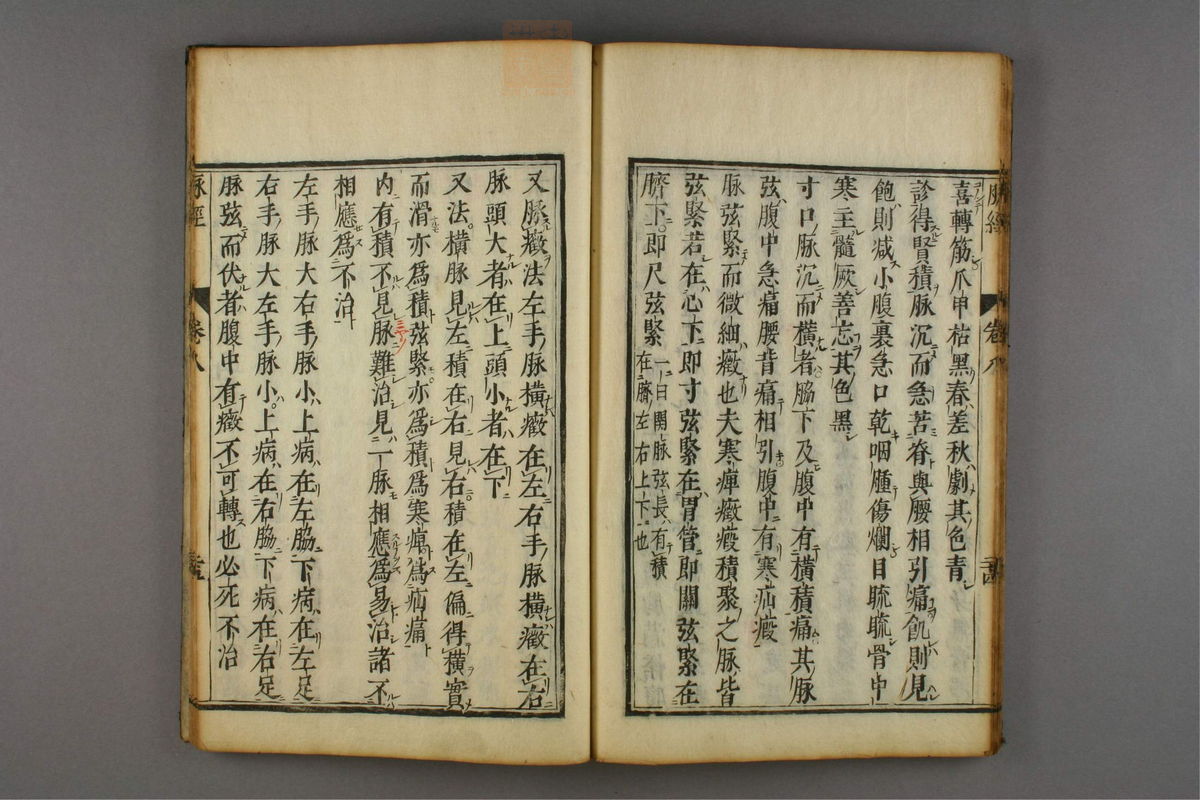 脉經 卷八
喜轉筋爪甲枯黑春差秋劇其色青
診得腎積脉沉而急苦脊與腰相引痛飢則見
飽則減小腹裏急口乾咽腫傷爛目䀮䀮骨中
寒主髓厥善忘其色黑
寸口脉沉而橫者脇下及腹中有橫積痛其脉
弦腹中急痛腰背痛相引腹中有寒疝瘕
脉弦緊而微細癥也夫寒痺癥瘕積聚之脉皆
弦緊若在心下即寸弦緊在胃管即關弦緊在
臍下即尺弦緊
一曰關脉弦長有積
在臍左右上下也
又脉癥法左手脉橫癥在左右手脉橫癥在右
脉頭大者在上頭小者在下
又法橫脉見左積在右見右積在左偏得橫實
而滑亦爲積弦緊亦爲積爲寒痺爲疝痛
内有積不見脉難治見一脉相應爲易治諸不
相應爲不治
左手脉大右手脉小上病在左脇下病在左足
右手脉大左手脉小上病在右脇下病在右足
脉弦而伏者腹中有癥不可轉也必死不治
脉經 卷八